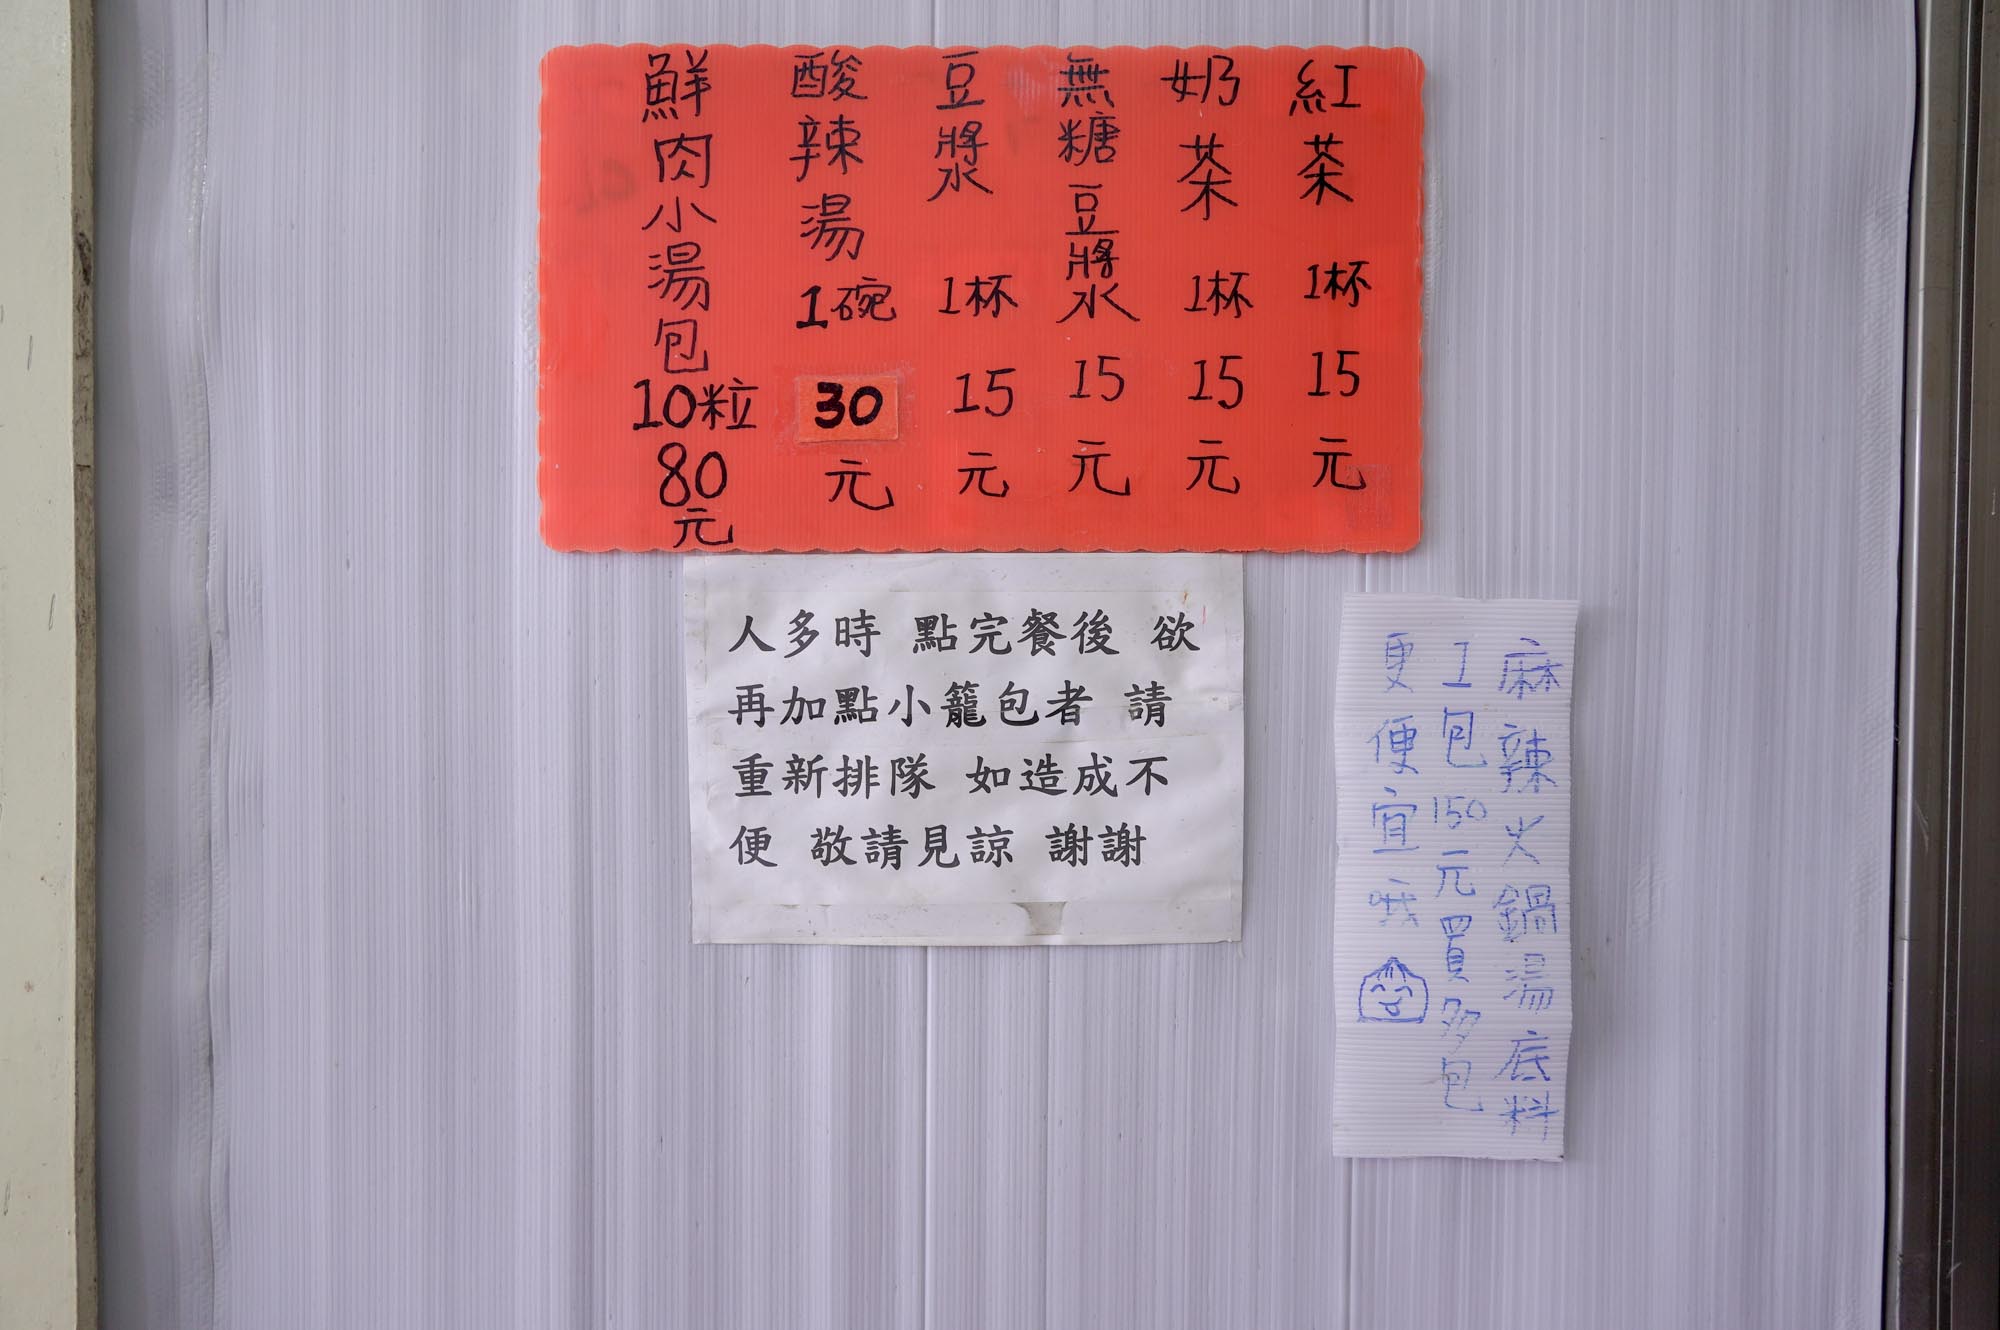 紅茶1杯15元
奶茶1杯15元
無糖豆漿15元
豆漿1杯15元
酸辣湯1碗30元
鮮肉小湯包10粒80元
人多時 點完餐後 欲
再加點小籠包者 請
重新排隊 如造成不
便 敬請見諒 謝謝
麻辣火鍋湯底料
1包150元買多包
更便宜哦